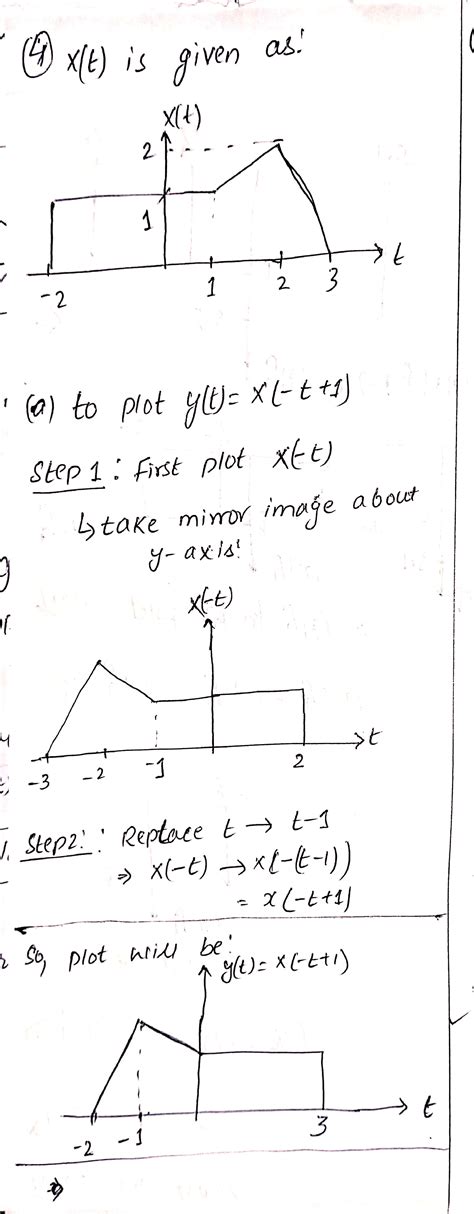 ④ x(t) is given as:
x(t)
2
1
-2 1 2 3 t
(a) to plot y(t) = x(-t+1)
Step 1 : First plot x(-t)
↳ take mirror image about
y-axis:
x(-t)
-3 -2 -1 2 t
Step2: : Replace t → t-1
⇒ x(-t) → x(-(t-1))
= x(-t+1)
So, plot will be:
y(t) = x(-t+1)
-2 -1 3 t